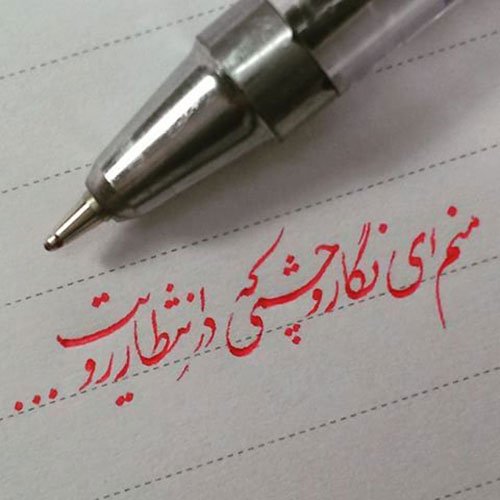 منم ای نگار و چشمی که در انتظار رویت ...